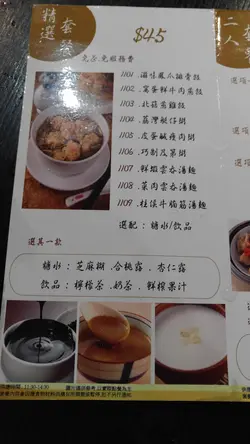 精選套餐
$45
免茶免服務費
1101. 滋味鳳爪排骨飯
1102. 窩蛋鮮牛肉蒸飯
1103. 北菇蒸雞飯
1104. 荔灣艇仔粥
1105. 皮蛋鹹瘦肉粥
1106. 巧制及第粥
1107. 鮮蝦雲吞湯麵
1108. 菜肉雲吞湯麵
1109. 柱侯牛腩筋湯麵
選配 : 糖水/飲品
選其一款
糖水 : 芝麻糊 . 合桃露 . 杏仁露
飲品 : 檸檬茶 . 奶茶 . 鮮榨果汁
二人
選項
選項